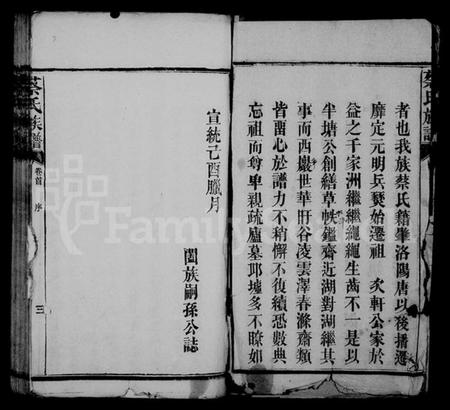 者也我族蔡氏籍肇洛陽唐以後播遷
靡定元明兵燹始遷祖 次軒公家於
益之千家洲繼繼繩繩生菑不一是以
半塘公創繕草帙鑑齋近湖對湖繼其
事而西巖世華盱谷凌雲澤春滌齋類
皆留心於譜力不稍懈不復續恐數典
忘祖而尊卑親疏廬墓邱墟多不瞭如
宣統己酉臘月
闔族嗣孫公誌
蔡氏族譜
卷首 序
三
蔡氏族譜
Family